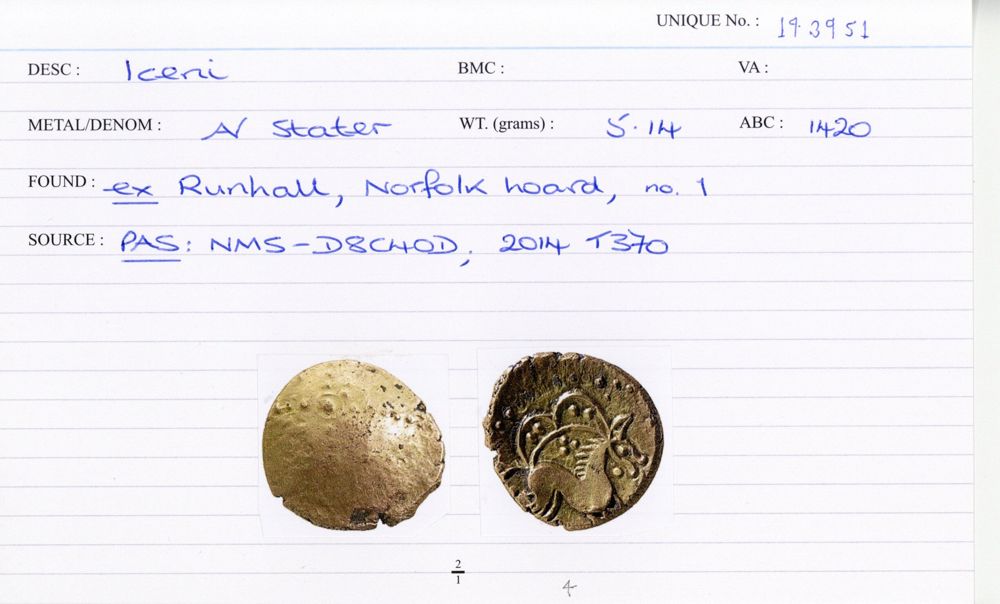 UNIQUE No. : 19.3951
DESC : Iceni BMC : VA :
METAL/DENOM : AV Stater WT. (grams) : 5.14 ABC : 1420
FOUND : ex Runhall, Norfolk hoard, no. 1
SOURCE : PAS: NMS-D8C40D, 2014 T370
2
1
4